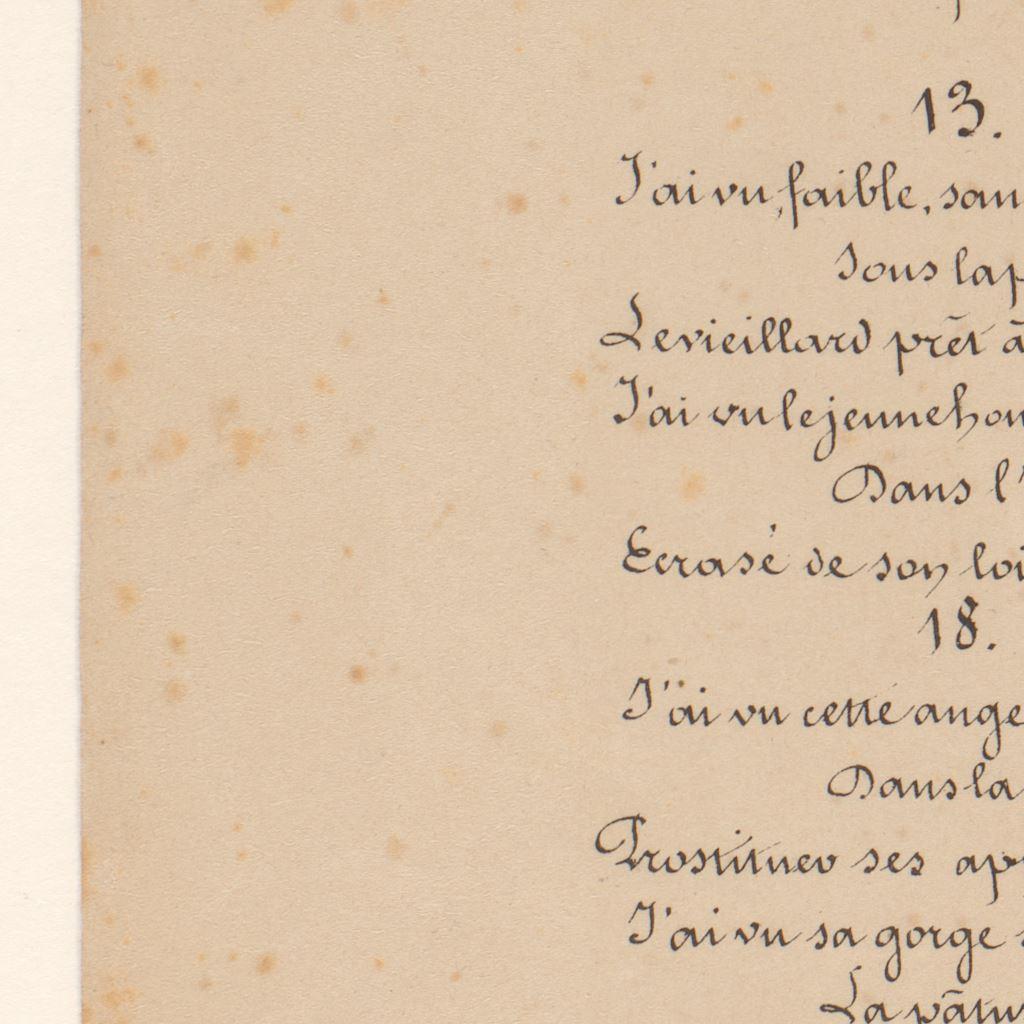 13.
J'ai vu, faible, san
Sous la p
Le vieillard prêt à
J'ai vu le jeune hom
Dans l'
Ecrasé de son loi
18.
J'ai vu cette ange
Dans la
Prostituer ses ap
J'ai vu sa gorge s
La pâtu